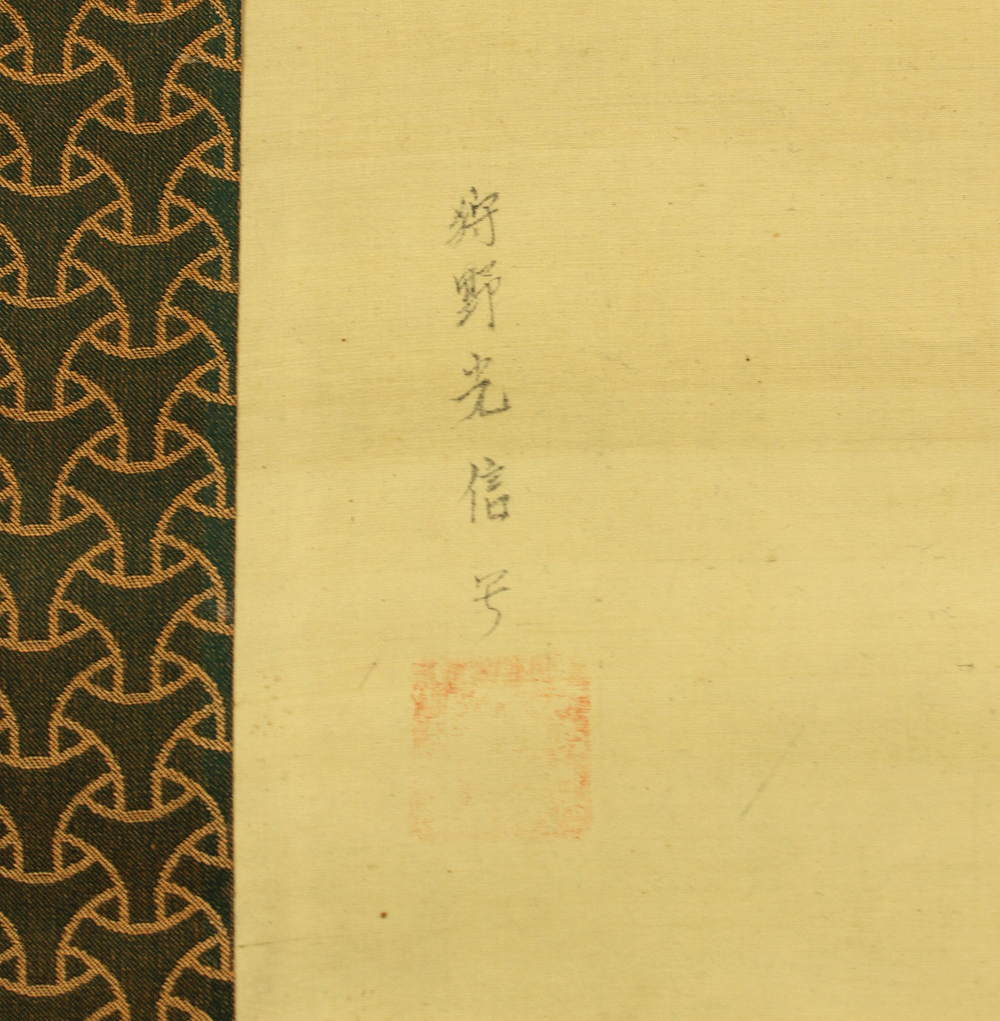 狩野光信